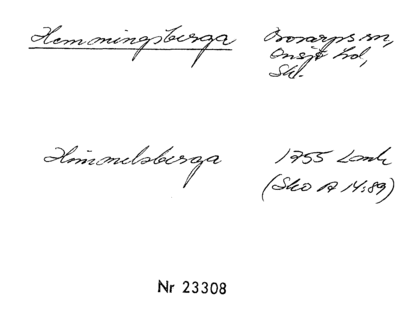 Hemmingsberga
Bosarps sn,
Onsjö hd,
Sk.
Himmelsberga
1755 Lantm
(Sko A 14:89)
Nr 23308